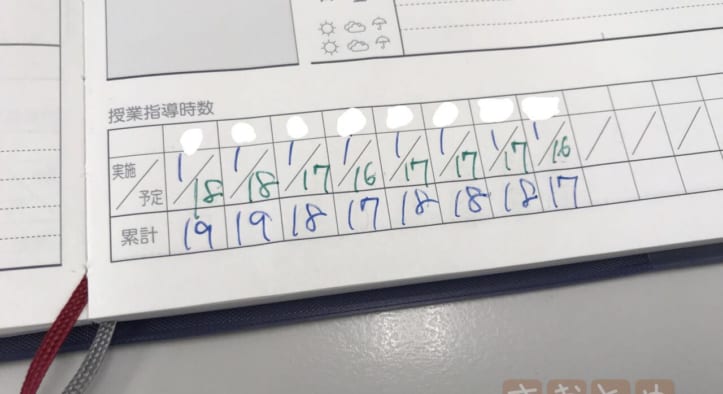 授業指導時数
実施/予定 1/18 1/18 1/17 1/16 1/17 1/17 1/17 1/16 / / /
累計 19 19 18 17 18 18 18 17